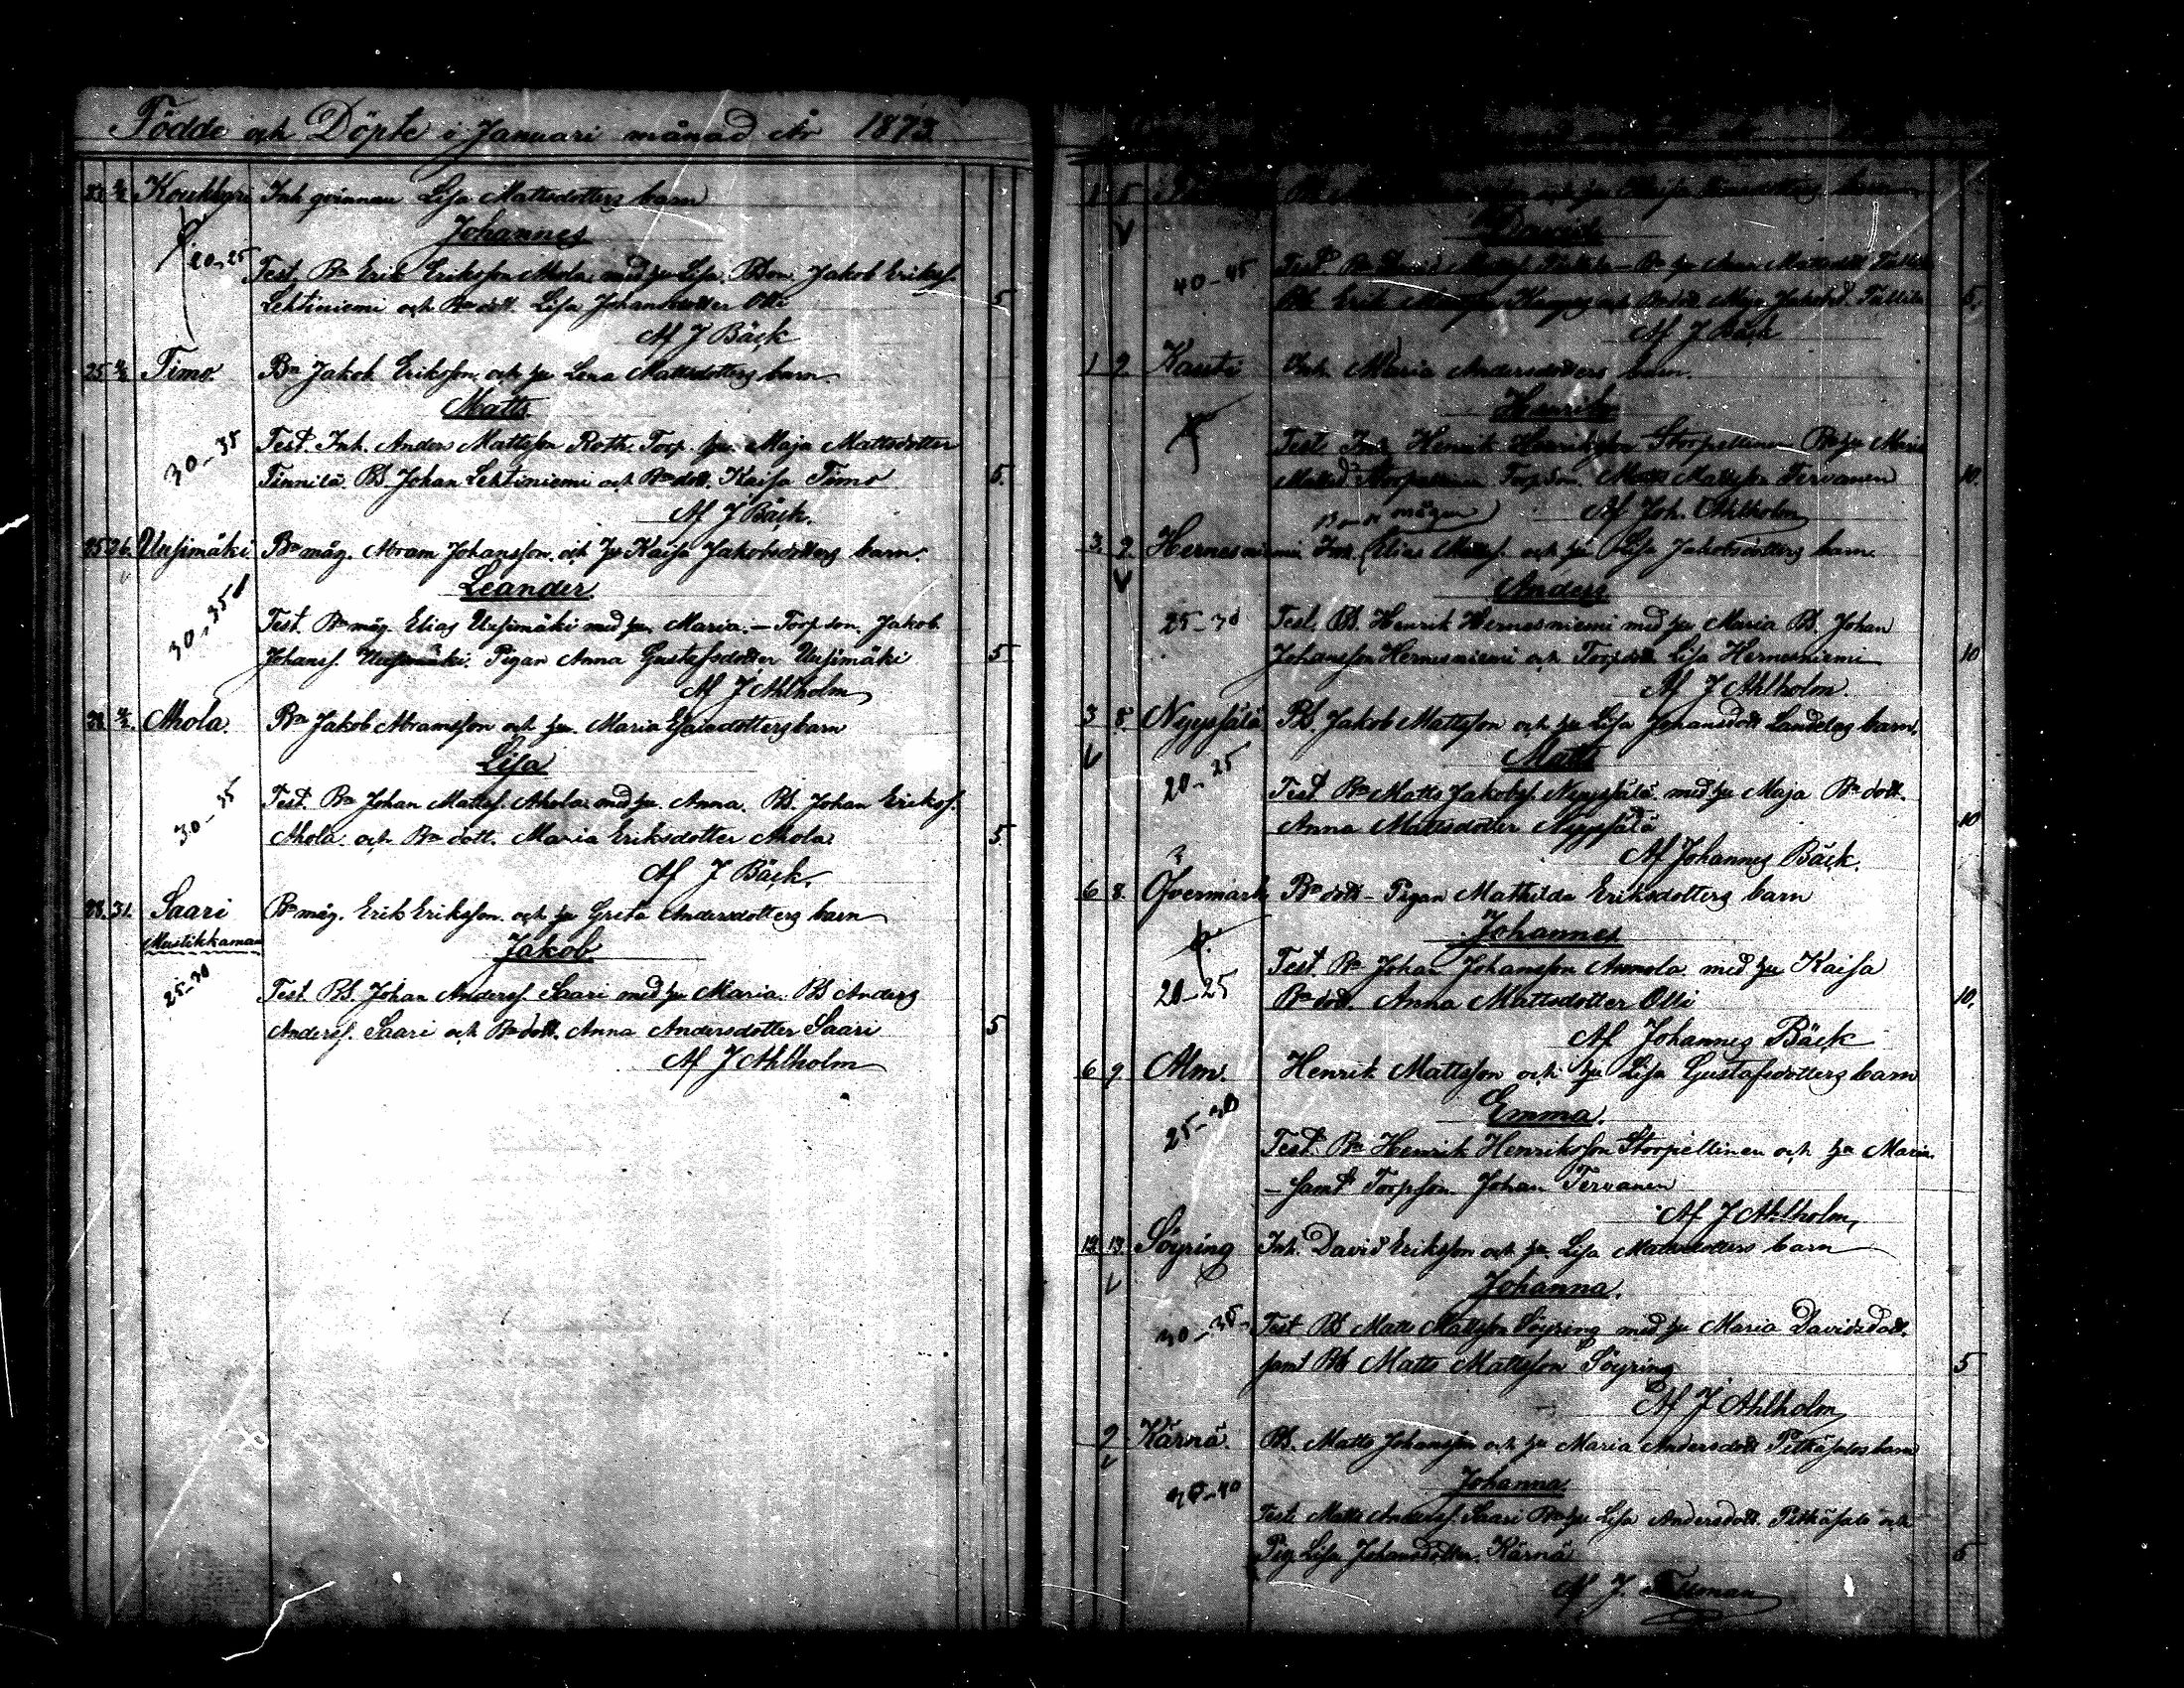 Födde och Döpte i Januari månad År 1873.
23. 2/2 Koukkari Inh. qvinnan Lisa Mattsdotters barn
Johannes
20-25 Test. Bn Erik Eriksson Ahola med hu Lisa. BSon Jakob Erikss.
Lehtiniemi och Bn dott. Lisa Johansdotter Olli 5
Af J Bäck
25 2/2 Timo. Bn Jakob Eriksson och hu Lena Mattsdotters barn.
Matts
30-35 Test. Inh. Anders Mattsson Roth. Torp. hu. Maja Mattsdotter
Tinnilä. BS. Johan Lehtiniemi och Bn dott. Kaisa Timo 5.
Af J Bäck.
25 26. Uusimäki Bn måg. Abram Johansson och hu Kaisa Jakobsdotters barn.
Leander
30-35 Test. Bn måg. Elias Uusimäki med hu. Maria. — Torpson. Jakob
Johanss. Uusimäki. Pigan Anna Gustafsdotter Uusimäki 5
Af J Ahlholm
28. 2/2. Ahola. Bn Jakob Abramsson och hu. Maria Esaiadotters barn
Lisa
30-35 Test. Bn Johan Mattss. Ahola med hu. Anna. BS. Johan Erikss.
Ahola. och Bn dott. Maria Eriksdotter Ahola. 5
Af J Bäck.
28. 31. Saari Bn måg. Erik Eriksson. och hu Greta Andersdotters barn
Mustikkamaa
Jakob
25-30 Test. BS. Johan Anderss. Saari med hu Maria. BS Anders
Anderss. Saari och Bn dott. Anna Andersdotter Saari 5
Af J Ahlholm
1 5
David
40-45 Test. Bn David
BS. Erik 5.
Af J Bäck
1 9 Inh. Maria Andersdotters barn.
Henrik
Test. Inh. Henrik Henriksson Storpellinen Bn hu Maria
Mattsd. Storpellinen Torpson. Matts Mattsson Tervanen 10.
Af Joh. Ahlholm
Bn mågen
3. 9 Hernesniemi Inh. Elias Mattss. och hu Lisa Jakobsdotters barn.
Anders
25-30 Test. BS. Henrik Hernesniemi med hu Maria BS. Johan
Johansson Hernesniemi och Torpdott. Lisa Hernesniemi 10
Af J Ahlholm.
3 8. Nyyssälä BS. Jakob Mattsson och hu Lisa Johansdott. barn.
Matts
20-25 Test. Bn Matts Jakobss. Nyyssälä. med hu Maja Bn dott.
Anna Mattsdotter Nyyssälä 10
Af Johannes Bäck.
6 8. Öfvermark Bn dott - Pigan Mathilda Eriksdotters barn
Johannes
20-25 Test. Bn Johan Johansson Annola med hu Kaisa
Bn dott. Anna Mattsdotter Olli 10.
Af Johannes Bäck
6 9 Alm. Henrik Mattsson och hu Lisa Gustafsdotters barn
Emma.
25-30 Test. Bn Henrik Henriksson Storpellinen och hu Maria
— samt Torpson. Johan Tervanen
Af J Ahlholm,
12. 13 Söyring Inh. David Eriksson och hu. Lisa Mattsdotters barn
Johanna.
30-35 Test BS Matts Mattsson Söyring med hu Maria Davidsdott.
samt BS Matts Mattsson Söyring 5
Af J Ahlholm
9 Kärnä. BS. Matts Johansson och hu Maria Andersdott. Pitkäsalos barn
Johanna
Test. Matts Anderss. Saari Bn hu Lisa Andersdott. Pitkäsalo och
Pig. Lisa Johansdotter. Kärnä 5
Af J.